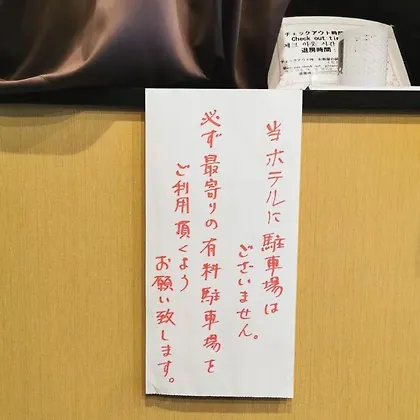 当ホテルに駐車場は
ございません。
必ず最寄りの有料駐車場を
ご利用頂くよう
お願い致します。
チェックアウト時間
Check out tim
체크 아웃 시간
退房時間: